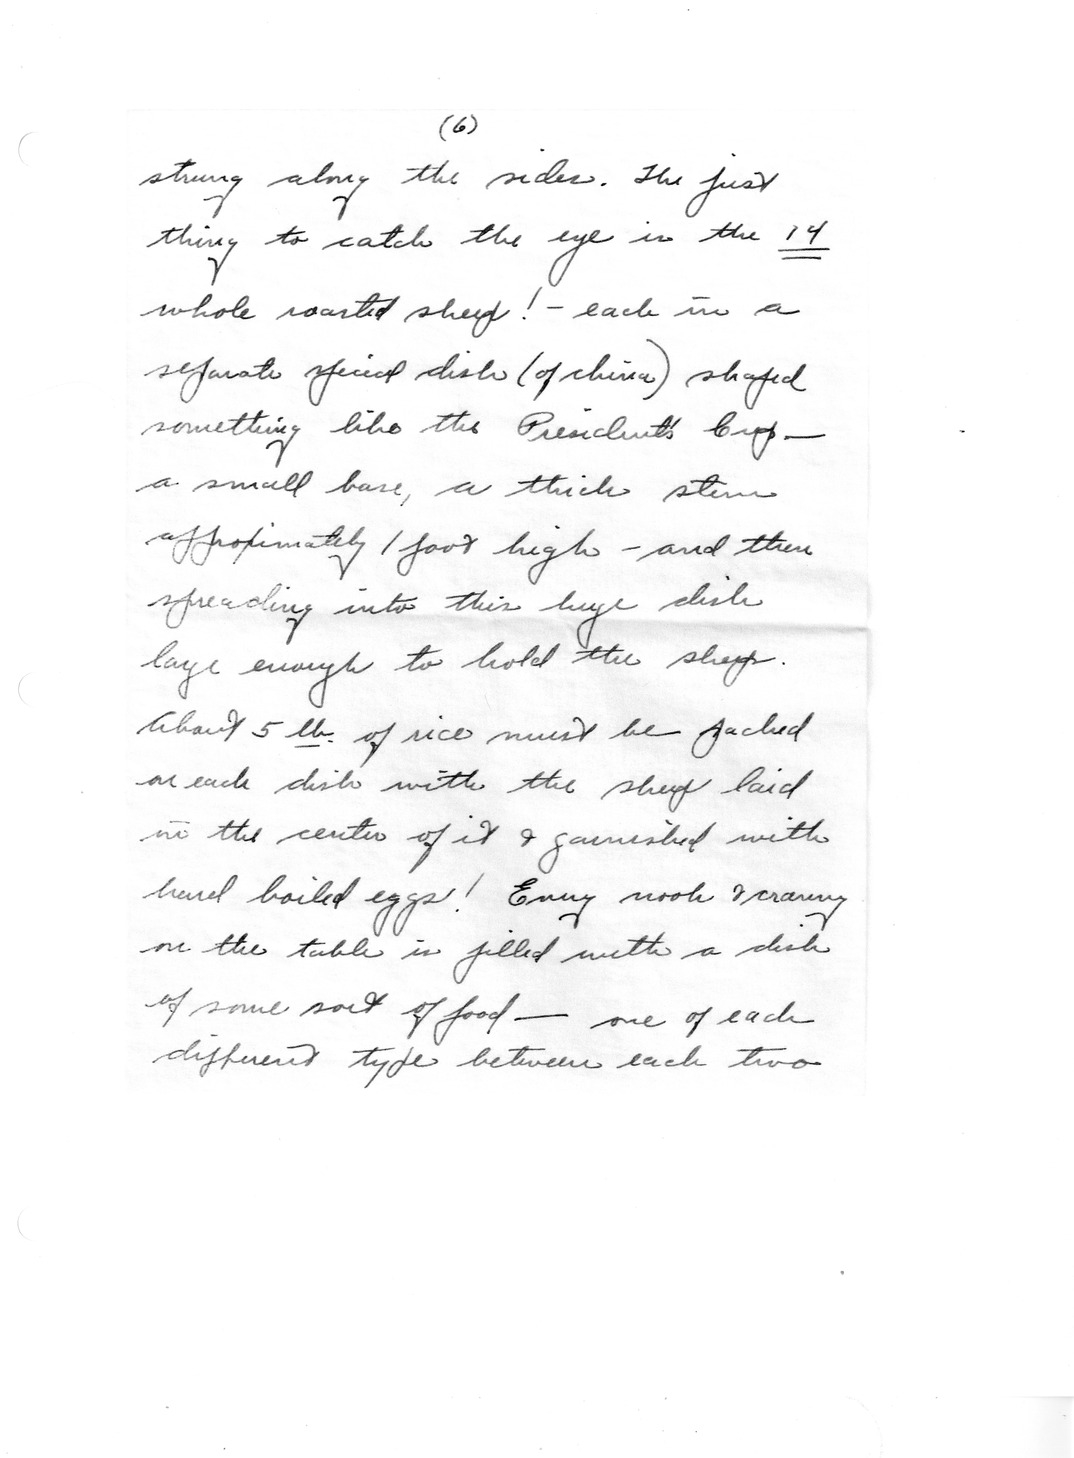 (6)
strung along the sides. The first
thing to catch the eye is the 14
whole roasted sheep! - each in a
separate special dish (of china) shaped
something like the President's Cup —
a small base, a thick stem
approximately 1 foot high - and then
spreading into this huge dish
large enough to hold the sheep.
About 5 lb. of rice must be packed
on each dish with the sheep laid
in the center of it & garnished with
hard boiled eggs! Every nook & cranny
on the table is filled with a dish
of some sort of food — one of each
different type between each two